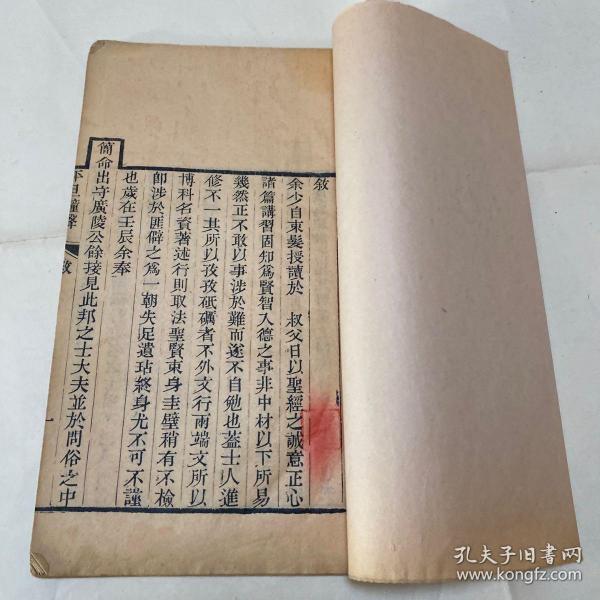 敘
余少自束髮授讀於　叔父日以聖經之誠意正心
諸篇講習固知為賢智入德之事非中材以下所易
幾然正不敢以事涉於難而遂不自勉也蓋士人進
修不一其所以孜孜砥礪者不外文行兩端文所以
博科名資著述行則取法聖賢束身圭壁稍有不檢
即涉於匪僻之為一朝失足遺玷終身尤不可不謹
也歲在壬辰余奉
簡命出守廣陵公餘接見此邦之士大夫並於問俗之中
平旦鐘聲
敘
一
孔夫子旧书网
www.kongfz.com